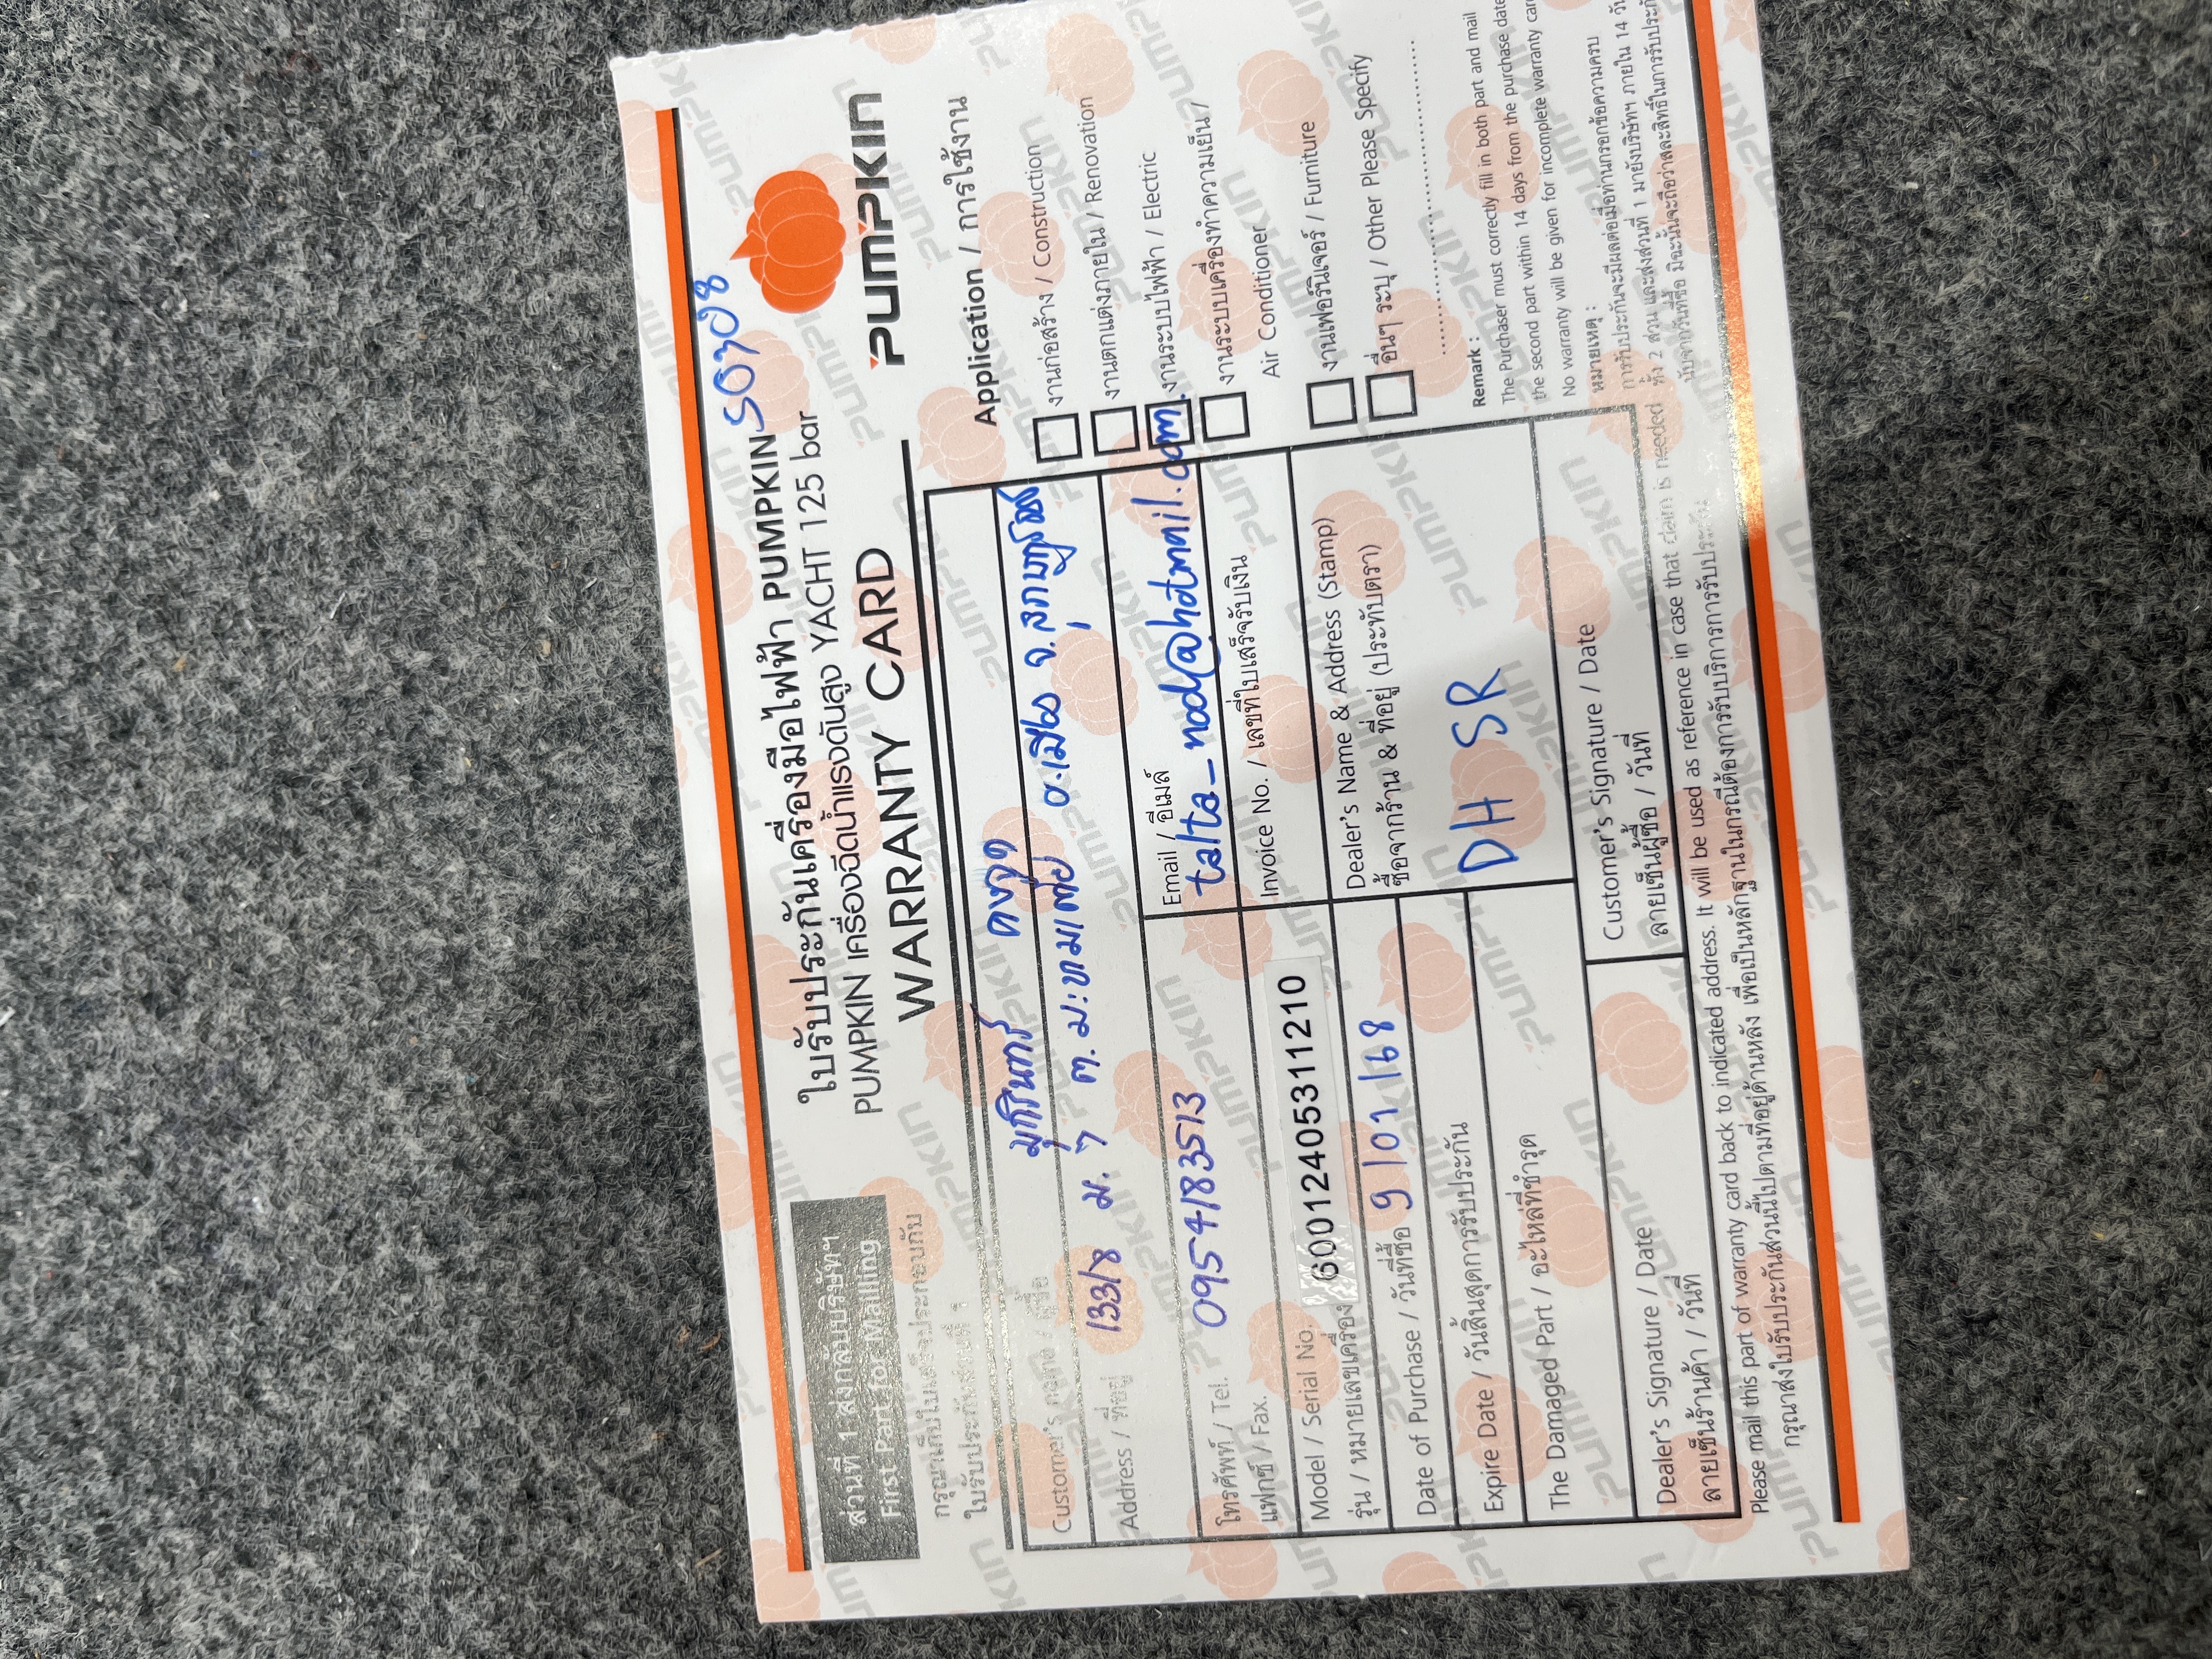 ใบรับประกันเครื่องมือไฟฟ้า PUMPKIN 50708
PUMPKIN เครื่องฉีดน้ำแรงดันสูง YACHT 125 bar
WARRANTY CARD
PUMPKIN
ส่วนที่ 1 ส่งกลับบริษัทฯ
First Part for Mailing
กรุณาเก็บใบเสร็จประกอบกับ
ใบรับประกันส่วนที่
Customer's name / ชื่อ
Address / ที่อยู่ 133/8 ม. 7 ต. มะขามเตี้ย อ.เมือง จ.
โทรศัพท์ / Tel. 0954183513
แฟกซ์ / Fax.
Email / อีเมล์
talta_nody@hotmail.com.
Invoice No. / เลขที่ใบเสร็จรับเงิน
Model / Serial No. 60012405311210
รุ่น / หมายเลขเครื่อง
Date of Purchase / วันที่ซื้อ 9/01/68
Expire Date / วันสิ้นสุดการรับประกัน
The Damaged Part / อะไหล่ที่ชำรุด
Dealer's Name & Address (Stamp)
ซื้อจากร้าน & ที่อยู่ (ประทับตรา)
DH SR
Dealer's Signature / Date
ลายเซ็นร้านค้า / วันที่
Customer's Signature / Date
ลายเซ็นผู้ซื้อ / วันที่
Please mail this part of warranty card back to indicated address. It will be used as reference in case that claim is needed
กรุณาส่งใบรับประกันส่วนนี้ไปตามที่อยู่ด้านหลัง เพื่อเป็นหลักฐานในกรณีต้องการรับบริการการรับประกัน
Application / การใช้งาน
งานก่อสร้าง / Construction
งานตกแต่งภายใน / Renovation
งานระบบไฟฟ้า / Electric
งานระบบเครื่องทำความเย็น /
Air Conditioner
งานเฟอร์นิเจอร์ / Furniture
อื่นๆ ระบุ / Other Please Specify
Remark :
The Purchaser must correctly fill in both part and mail
the second part within 14 days from the purchase date
No warranty will be given for incomplete warranty card
หมายเหตุ :
การรับประกันจะมีผลต่อเมื่อท่านกรอกข้อความครบ
ทั้ง 2 ส่วน และส่งส่วนที่ 1 มายังบริษัทฯ ภายใน 14 วัน
นับจากวันที่ซื้อ มิฉะนั้นจะถือว่าสละสิทธิ์ในการรับประกัน